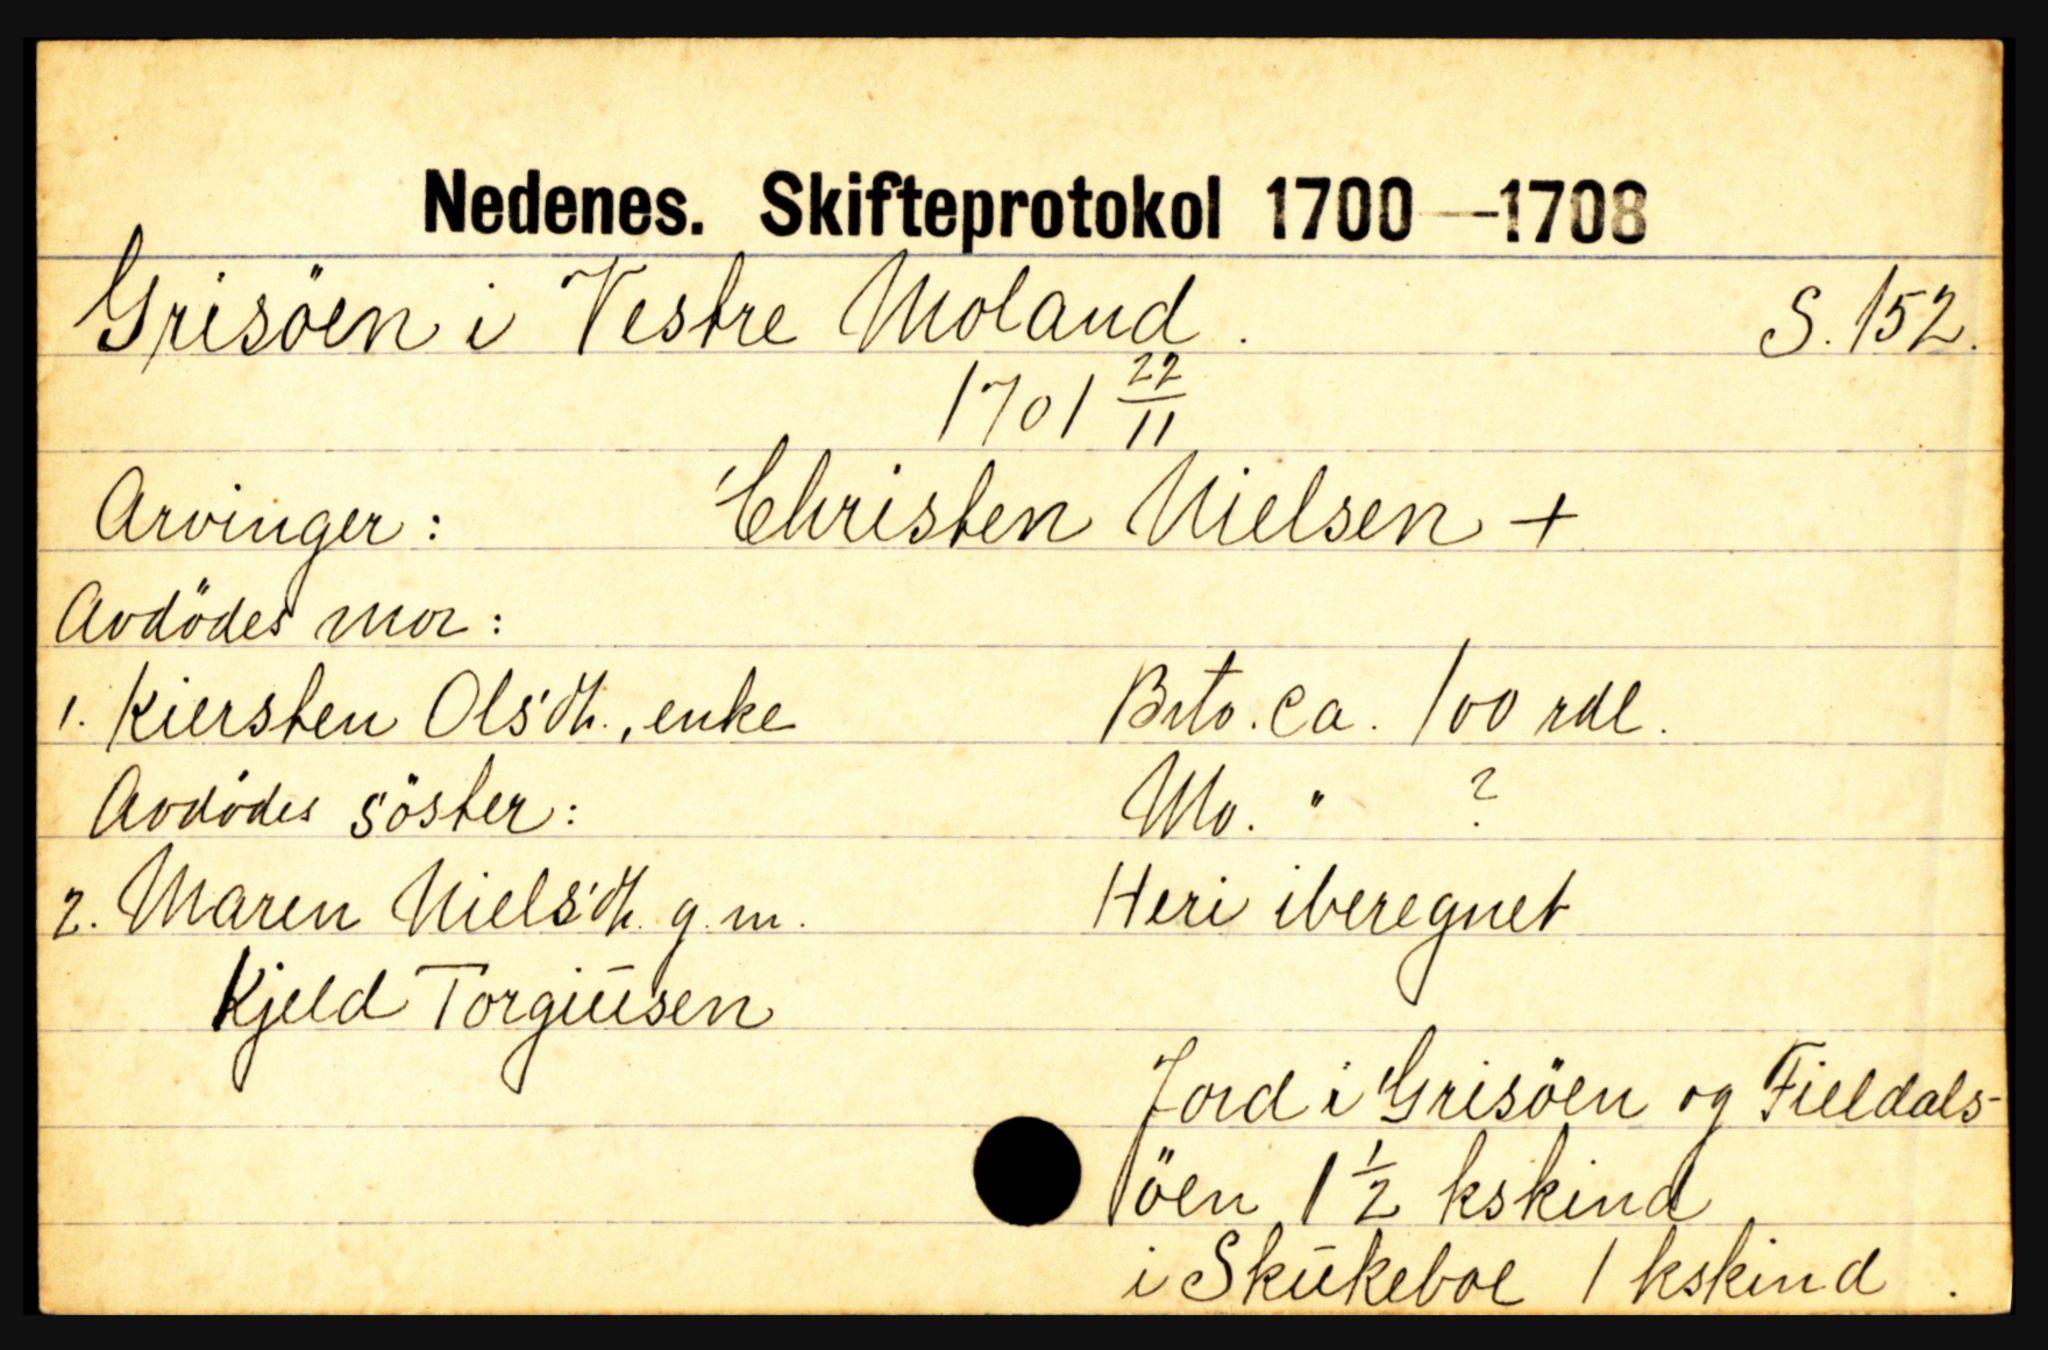 Nedenes. Skifteprotokol 1700—1708
Grisöen i Vestre Moland. S. 152.
1701 22/11
Arvinger: Christen Nielsen +
Avdödes mor:
1. Kiersten Olsdtr., enke Brto. ca. 100 rdl.
Avdödes söster: Mo. " ?
2. Maren Nielsdtr. g. m. Heri iberegnet
Kjeld Torgiusen
Jord i Grisöen og Fieldals-
öen 1 1/2 kskind
i Skukeboe 1 kskind.